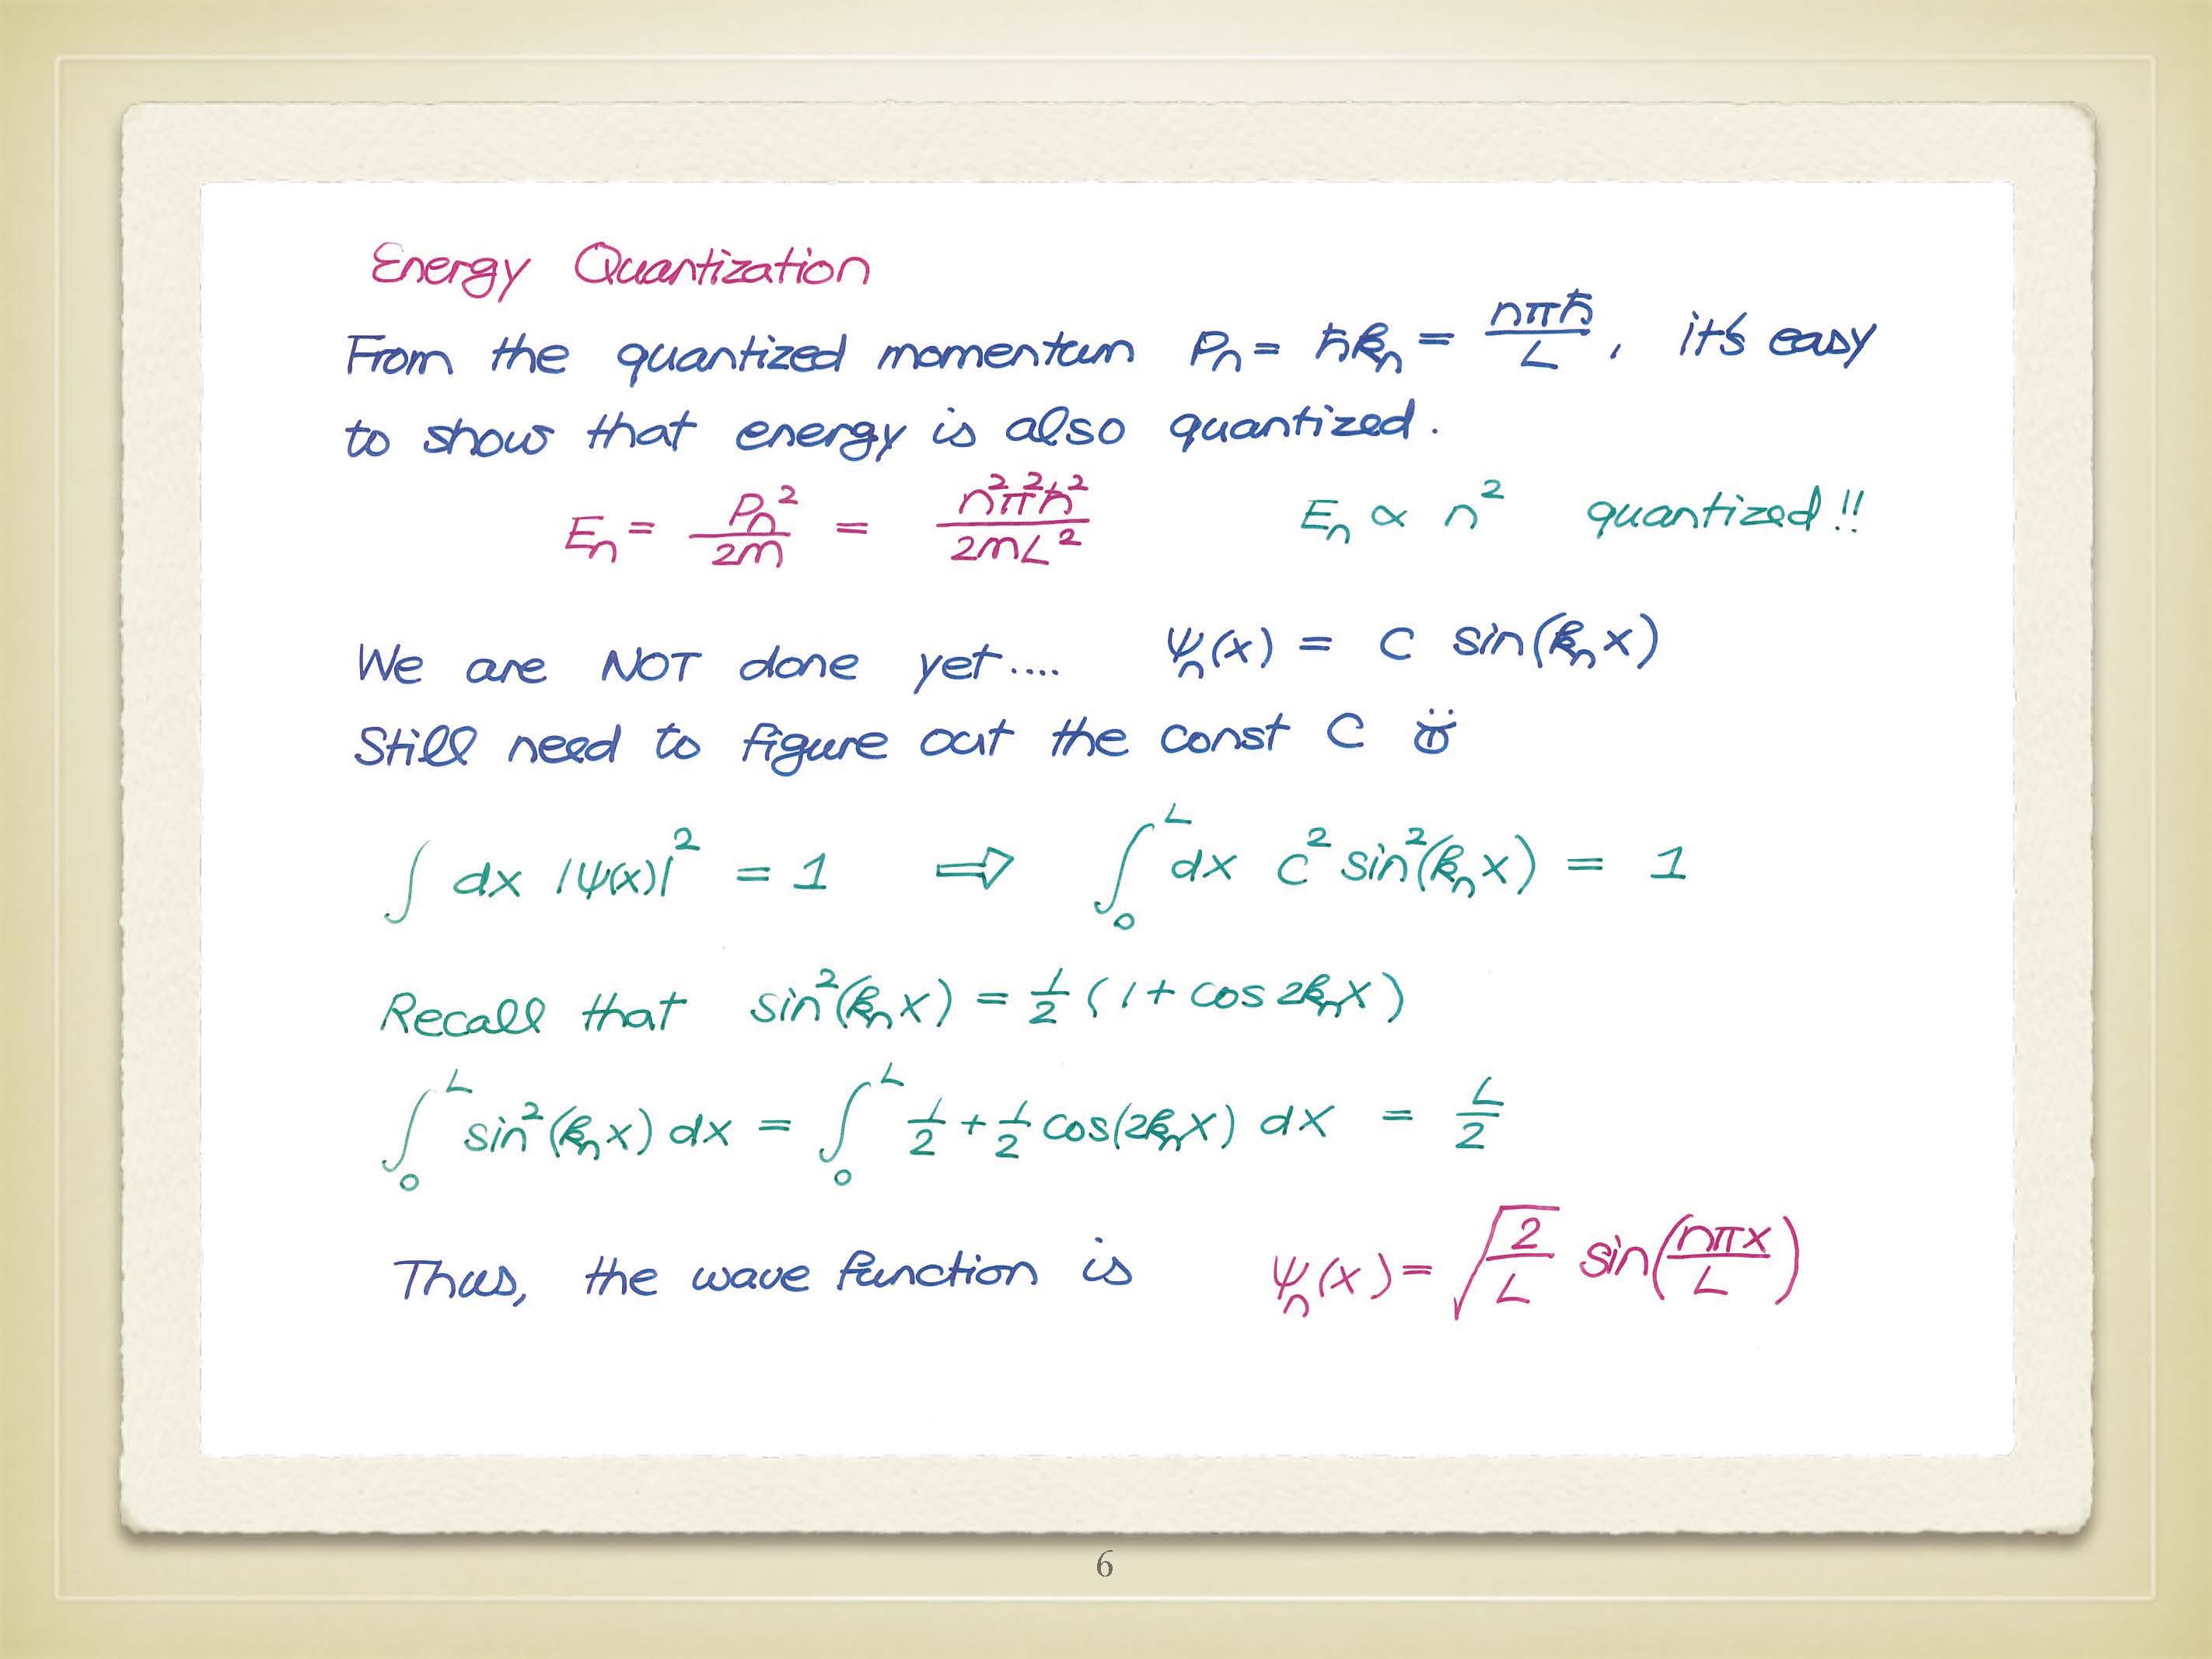 Energy Quantization
From the quantized momentum Pn = ħkn = nπħ/L , it's easy
to show that energy is also quantized.
En = Pn²/2m = n²π²ħ²/2mL² En ∝ n² quantized!!
We are NOT done yet.... ψn(x) = C sin(knx)
Still need to figure out the const C
∫ dx |ψ(x)|² = 1 ⇨ ∫₀ᴸ dx C² sin²(knx) = 1
Recall that sin²(knx) = 1/2 (1 + cos 2knx)
∫₀ᴸ sin²(knx) dx = ∫₀ᴸ 1/2 + 1/2 cos(2knx) dx = L/2
Thus, the wave function is ψn(x) = √(2/L) sin(nπx/L)
6